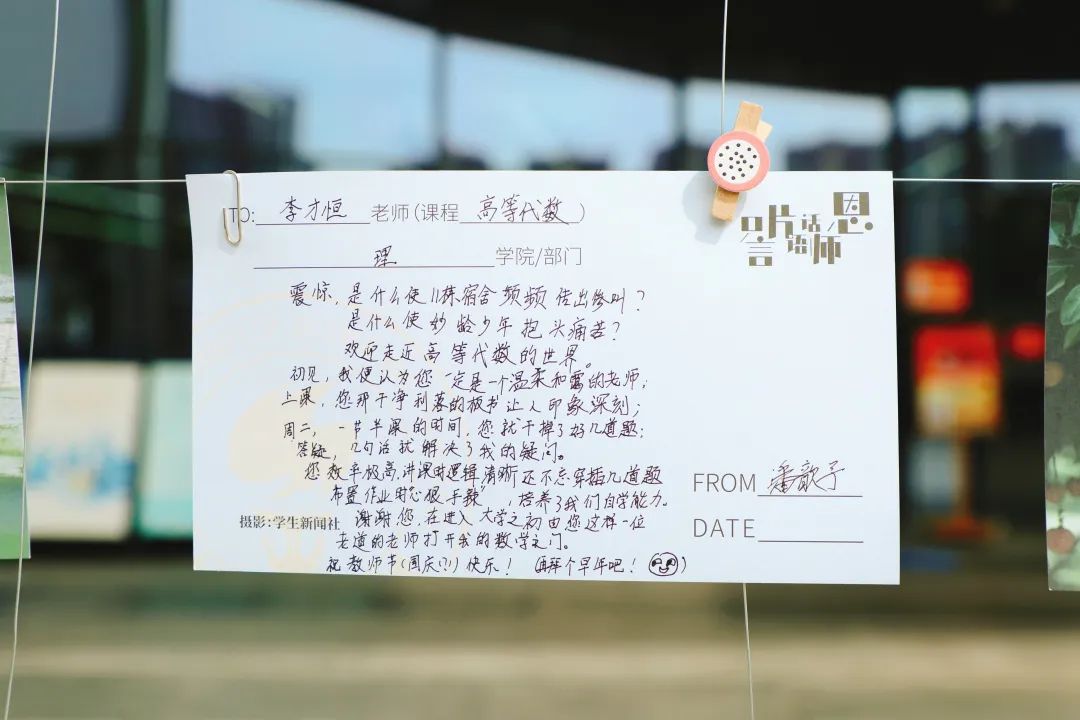 TO: 李才恒 老师(课程 高等代数)
理 学院/部门
片言话语 恩师
震惊,是什么使11栋宿舍频频传出惨叫?
是什么使妙龄少年抱头痛苦?
欢迎走近高等代数的世界。
初见,我便认为您一定是一个温柔和蔼的老师;
上课,您那干净利落的板书让人印象深刻;
周二,一节半课的时间,您就干掉了好几道题;
答疑,几句话就解决了我的疑问。
您效率极高,讲课时逻辑清晰还不忘穿插几道题
布置作业时心狠手辣”,培养了我们自学能力。
谢谢您,在进入大学之初由您这样一位
老道的老师打开我的数学之门。
祝教师节(国庆?!)快乐! (再拜个早年吧! )
FROM 潘歆予
DATE
摄影:学生新闻社